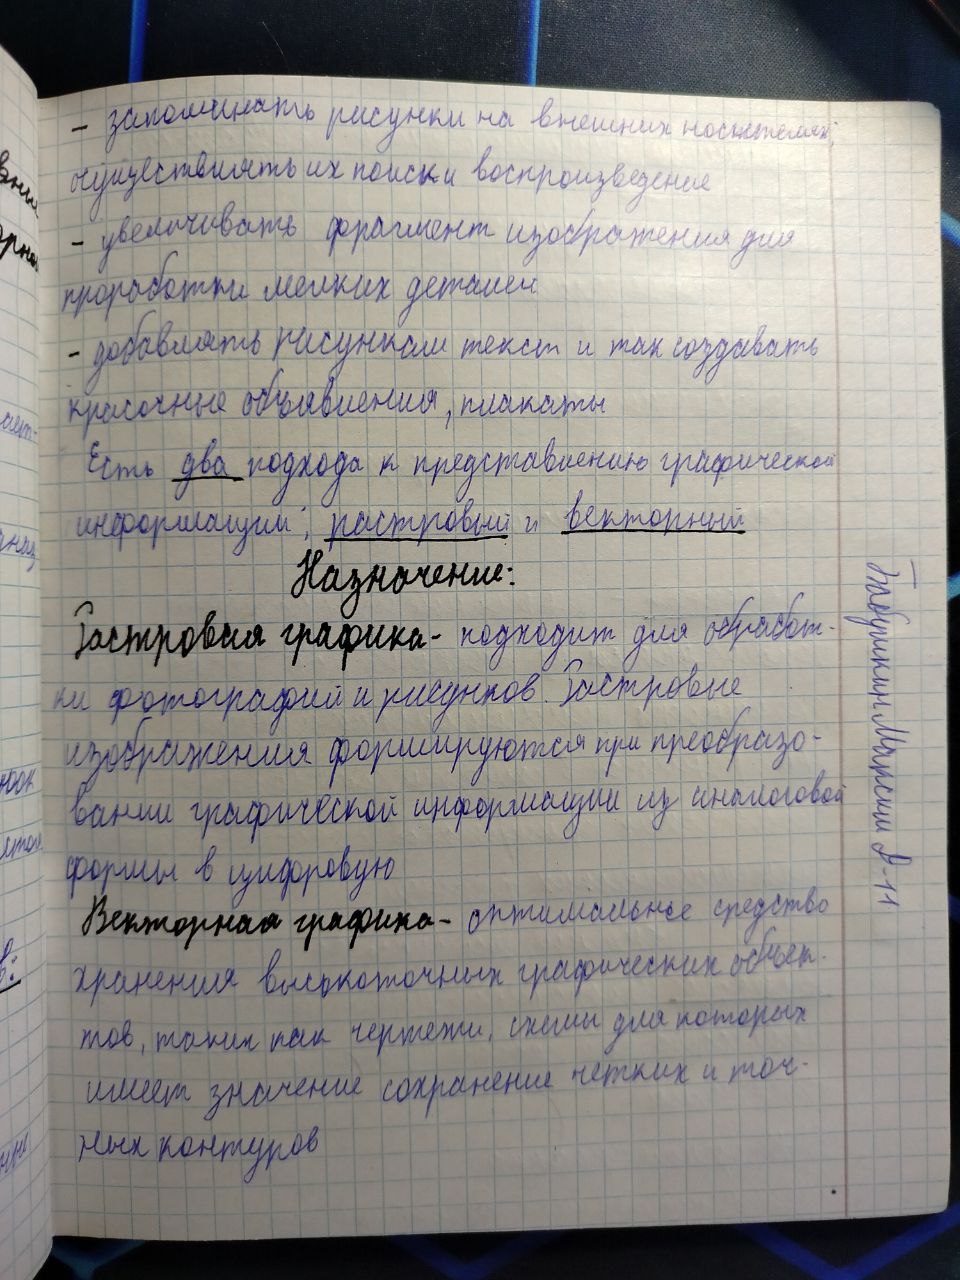 - запоминать рисунки на внешних носителях
осуществлять их поиск и воспроизведение
- увеличивать фрагмент изображения для
проработки мелких деталей
- добавлять рисункам текст и так создавать
красочные объявления, плакаты
Есть два подхода к представлению графической
информации; растровый и векторный
Назначение:
Растровая графика - подходит для обработ-
ки фотографий и рисунков. Растровые
изображения формируются при преобразо-
вании графической информации из аналоговой
формы в цифровую
Векторная графика - оптимальное средство
хранения высокоточных графических объек-
тов, таких как чертежи, схемы для которых
имеет значение сохранение четких и точ-
ных контуров